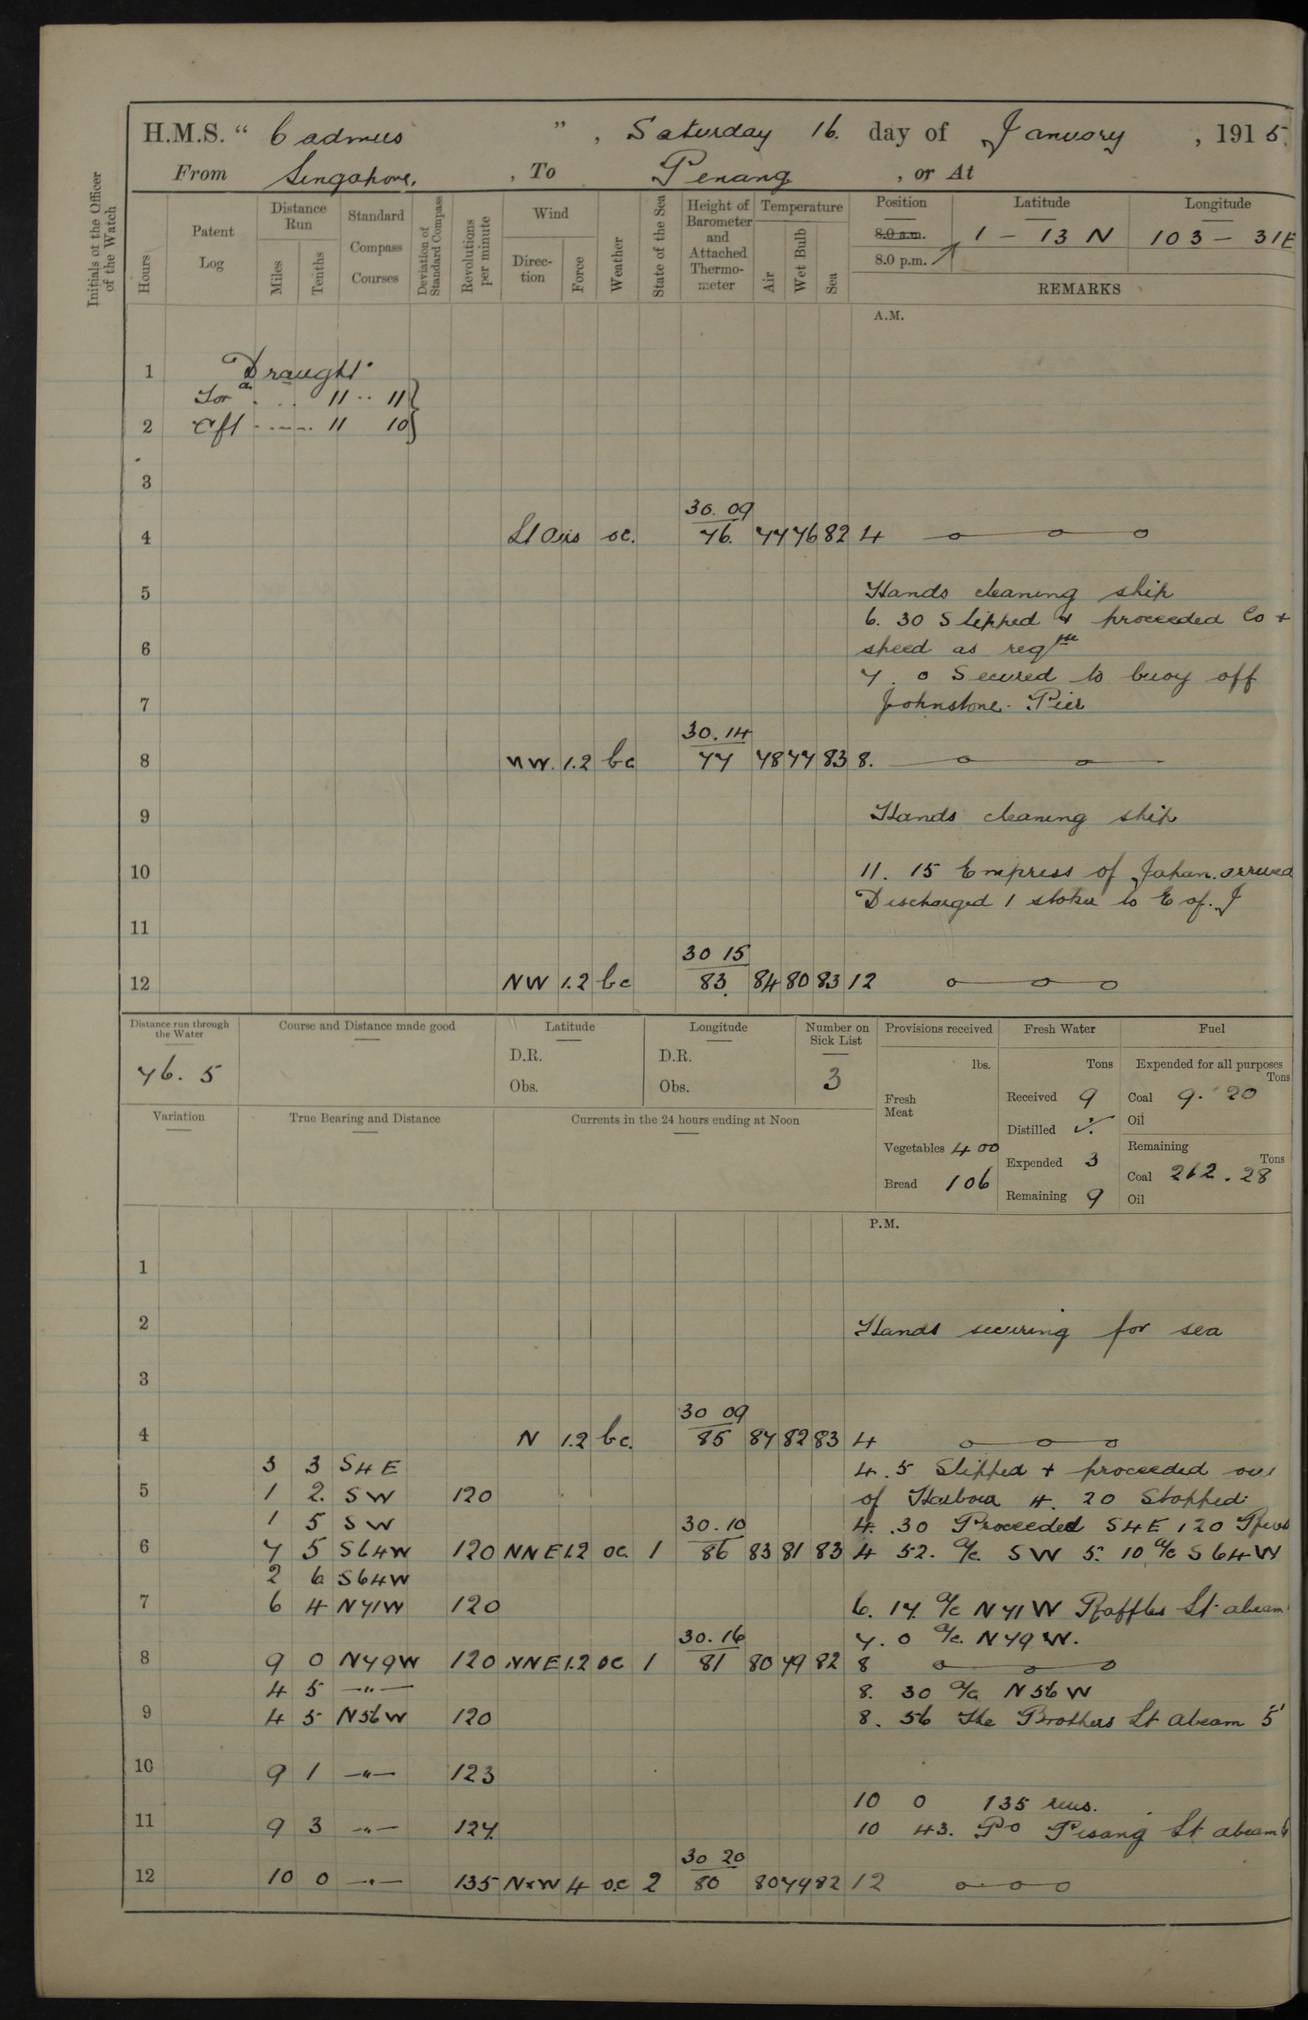 H.M.S. " Cadmus ", Saturday 16. day of January, 1915.
From Singapore, To Penang, or At
Initials of the Officer of the Watch
Hours
Patent Log
Distance Run
Miles
Tenths
Standard Compass Courses
Deviation of Standard Compass
Revolutions per minute
Wind
Direction
Force
Weather
State of the Sea
Height of Barometer and Attached Thermometer
Temperature
Air
Wet Bulb
Sea
Position
8.0 a.m.
8.0 p.m.
Latitude
1 - 13 N
Longitude
103 - 31E
REMARKS
A.M.
1 Draught
For'd . . . 11 .. 11
2 Aft ------ 11 10
3
30. 09
4 Lt airs oc. 76. 77 76 82 4
5 Hands cleaning ship
6. 30 Slipped & proceeded Co +
6 speed as reqte
7. 0 Secured to buoy off
7 Johnstone Pier
30. 14
8 NW. 1.2 bc 77 78 77 83 8.
9 Hands cleaning ship
10 11. 15 Empress of Japan. arrived
Discharged 1 stoker to E of. J
11
30 15
12 NW 1.2 bc 83. 84 80 83 12
Distance run through the Water
76. 5
Course and Distance made good
Latitude
D.R.
Obs.
Longitude
D.R.
Obs.
Number on Sick List
3
Provisions received
lbs.
Fresh Meat
Vegetables 400
Bread 106
Fresh Water
Tons
Received 9
Distilled
Expended 3
Remaining 9
Fuel
Expended for all purposes
Tons
Coal 9. 20
Oil
Remaining
Tons
Coal 262. 28
Oil
Variation
True Bearing and Distance
Currents in the 24 hours ending at Noon
P.M.
1
2 Hands securing for sea
3
30 09
4 N 1.2 bc. 85 87 82 83 4
3 3 S4E 4. 5 Slipped + proceeded out
5 1 2. SW 120 of Harbour 4. 20 Stopped.
1 5 SW 30. 10 4. 30 Proceeded S4E 120
6 7 5 S64W 120 NNE 1.2 oc. 1 86 83 81 83 4 52. A/c. SW 5. 10 A/c S64W
2 6 S64W
7 6 4 N71W 120 6. 17. A/c N71W Raffles Lt abeam
30. 16 7. 0 A/c. N79W.
8 9 0 N79W 120 NNE 1.2 oc 1 81 80 79 82 8
4 5 —"— 8. 30 A/c N56W
9 4 5 N56W 120 8. 56 The Brothers Lt abeam 5'
10 9 1 —"— 123
10 0 135 revs.
11 9 3 —"— 127. 10 43. Po Pisang Lt abeam
30 20
12 10 0 —"— 135 NxW 4 o.c 2 80 80 79 82 12